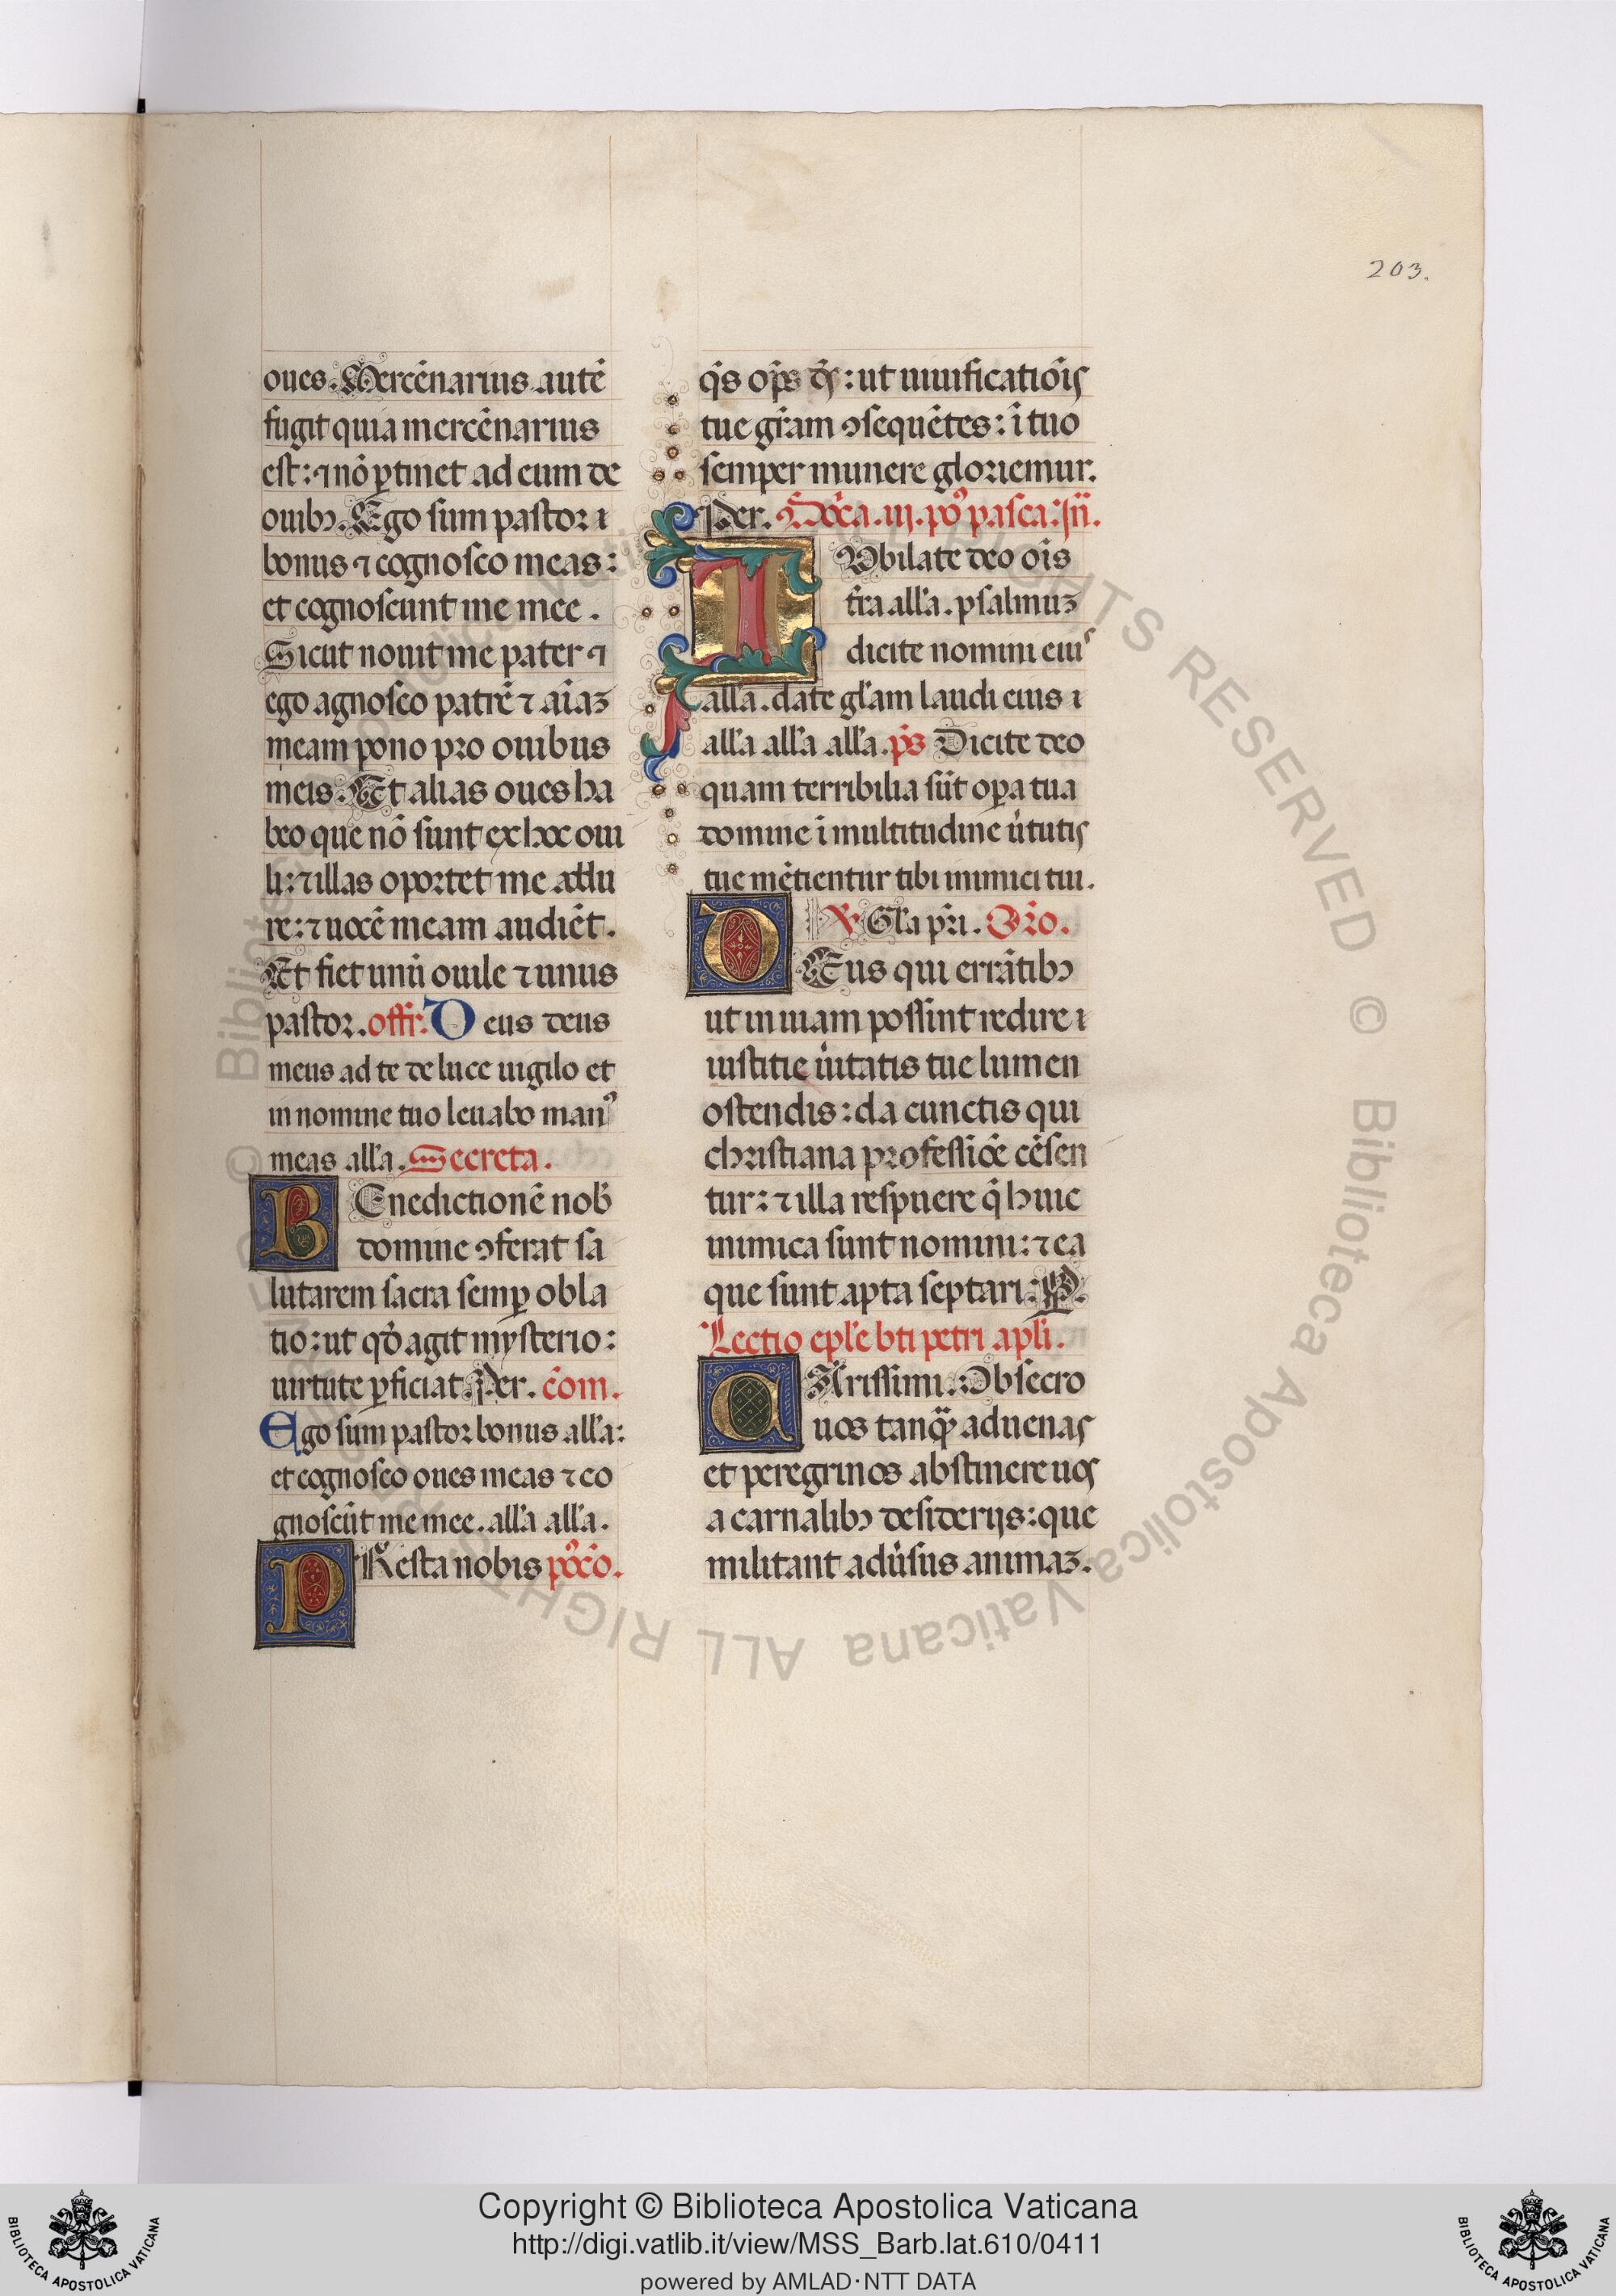 203.
oues. Mercēnarius autē
fugit quia mercēnarius
est: ⁊ nō ꝑtinet ad eum de
ouibꝫ. Ego sum pastor ı
bonus ⁊ cognosco meas:
et cognoscunt me mee.
Sicut nouit me pater ⁊
ego agnosco patrē ⁊ aīaꝫ
meam pono pro ouibus
meis. Et alias oues ha
beo que nō sunt ex hoc oui
li: ⁊ illas oportet me addu
re: ⁊ uocē meam audiēt.
Et fiet unū ouile ⁊ unus
pastor. offr. Deus deus
meus ad te de luce uigilo et
in nomine tuo leuabo manꝰ
meas all'a. Secreta.
BEnedictionē nob̄
domine ꝯferat sa
lutarem sacra semꝑ obla
tio: ut qd̄ agit mysterio:
uirtute ꝑficiat. Per. cōm.
Ego sum pastor bonus all'a:
et cognosco oues meas ⁊ co
gnoscūt me mee. all'a all'a.
PResta nobis poc̄o.
q̄s op̄s d̄s: ut uiuificatiōis
tue gr̄am ꝯsequētes: ī tuo
semper munere gloriemur.
Per. Dōca. iij. pꝰ pasca: In̄.
IUbilate deo oīs
t̄ra all'a. psalmuꝫ
dicite nomini eius
all'a. date gl'am laudi eius ı
all'a all'a all'a. p̄s Dicite deo
quam terribilia sūt oꝑa tua
domine ī multitudine ūtutis
tue mētientur tibi inimici tui.
℣ Gl'a pr̄i. Or̄o.
DEus qui errātibꝫ
ut in uiam possint redire ı
iustitie ūitatis tue lumen
ostendis: da cunctis qui
christiana professiōe cēsen
tur: ⁊ illa respuere q̄ huic
inimica sunt nomini: ⁊ ea
que sunt apta septari: P.
Lectio epl'e bt̄i petri apl'i.
CArissimi. Obsecro
uos tanq̄ȝ aduenas
et peregrinos abstinere uos
a carnalibꝫ desiderijs: que
militant adūsus animaꝫ.
© Biblioteca Apostolica Vaticana ALL RIGHTS RESERVED
Copyright © Biblioteca Apostolica Vaticana
http://digi.vatlib.it/view/MSS_Barb.lat.610/0411
powered by AMLAD·NTT DATA
BIBLIOTECA APOSTOLICA VATICANA
BIBLIOTECA APOSTOLICA VATICANA